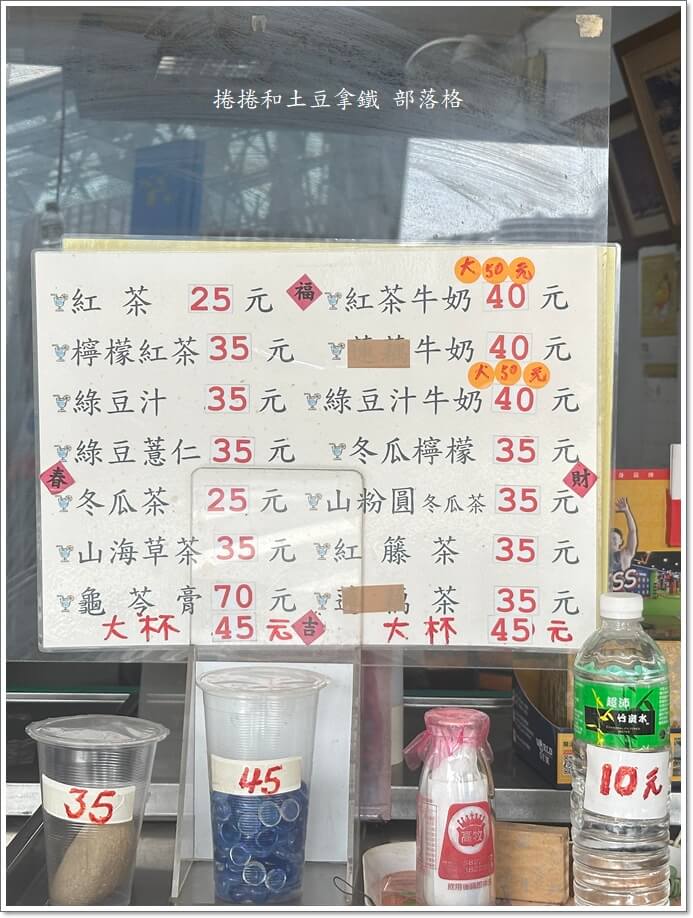 捲捲和土豆拿鐵 部落格
大50元
紅茶 25元 福 紅茶牛奶 40元
檸檬紅茶 35元 牛奶 40元
大50元
綠豆汁 35元 綠豆汁牛奶 40元
綠豆薏仁 35元 冬瓜檸檬 35元
春 財
冬瓜茶 25元 山粉圓冬瓜茶 35元
山海草茶 35元 紅籐茶 35元
龜苓膏 70元 茶 35元
大杯 45元 吉 大杯 45元
SS
超沛
竹炭水
35
45
10元
高牧